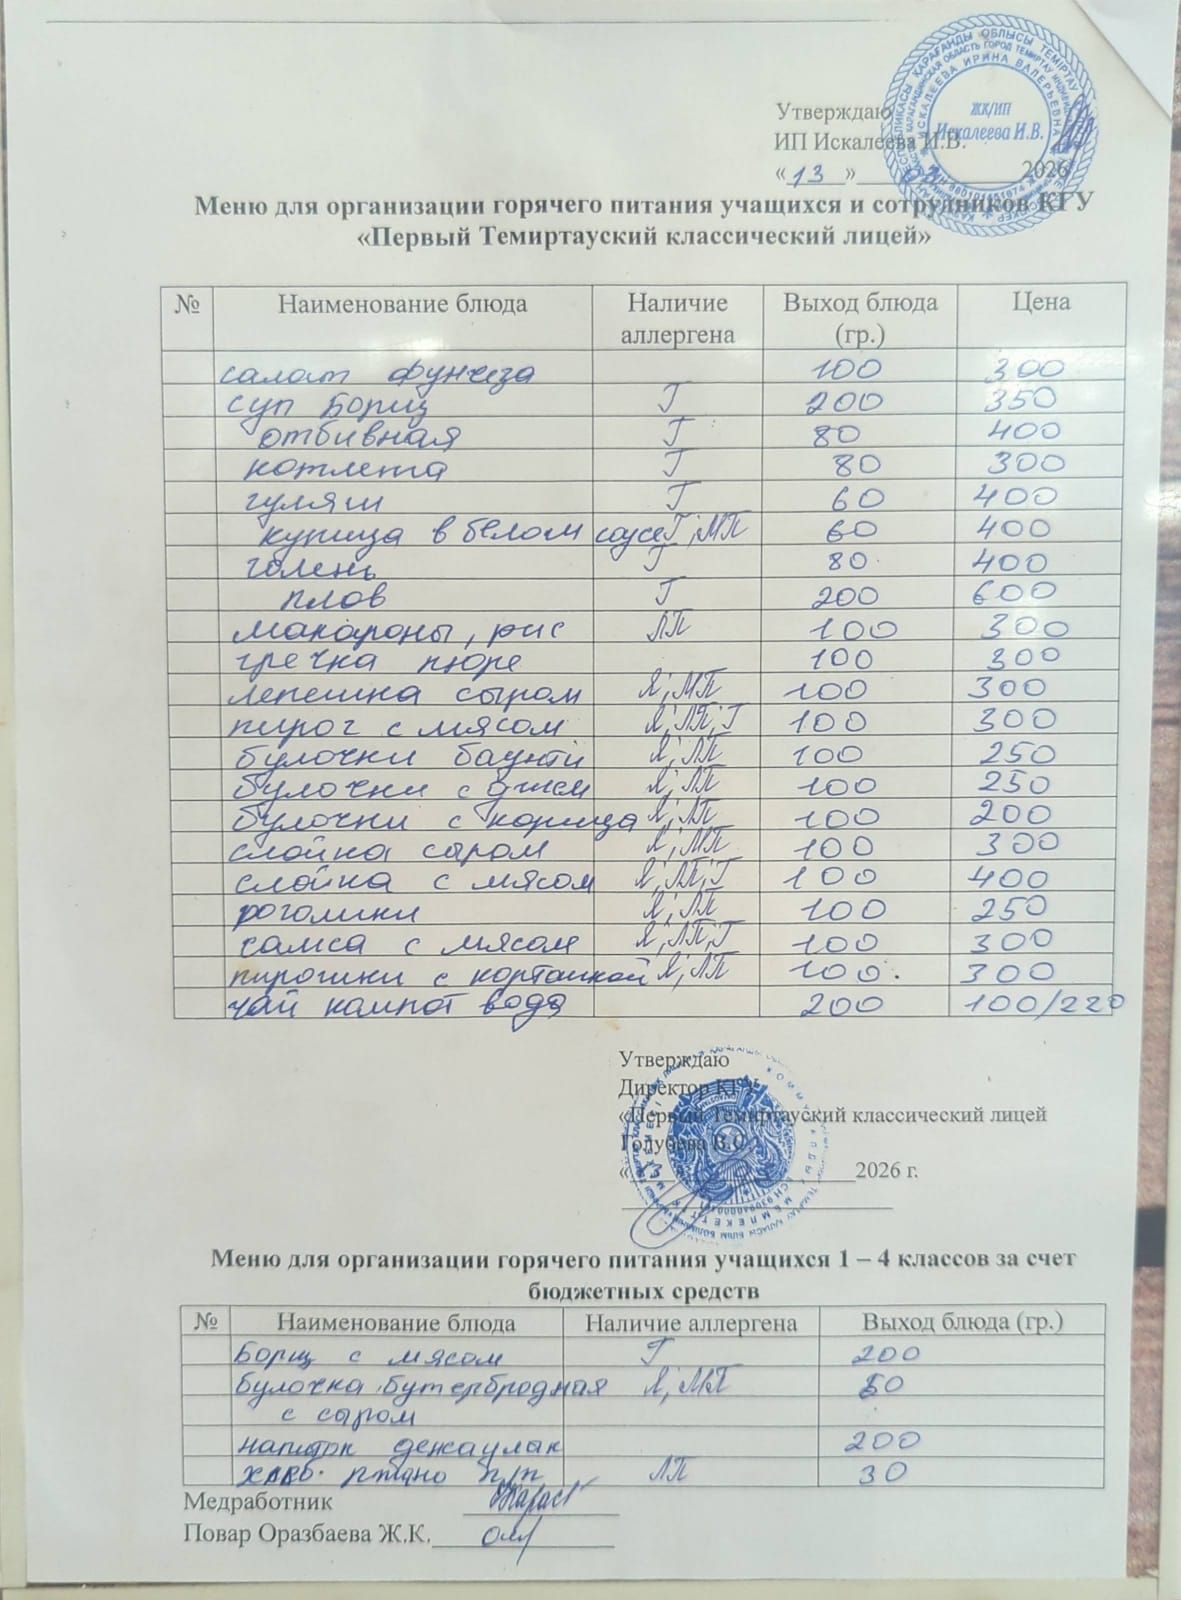 Утверждаю
ИП Искалеева И.В.
« 13 » 2026
ЖК/ИП
Искалеева И.В.
Меню для организации горячего питания учащихся и сотрудников КГУ
«Первый Темиртауский классический лицей»
№ Наименование блюда Наличие аллергена Выход блюда (гр.) Цена
салат фунчеза 100 300
суп Борщ Г 200 350
отбивная Г 80 400
котлета Г 80 300
гуляш Г 60 400
курица в белом соусе Г; МП 60 400
голень Г 80 400
плов Г 200 600
макароны, рис ЛП 100 300
гречка пюре 100 300
лепешка сыром Я; МП 100 300
пирог с мясом Я; ЛП; Г 100 300
булочки баунти Я; ЛП 100 250
булочки с джем Я; ЛП 100 250
булочки с корица Я; ЛП 100 200
слойка сыром Я; МП 100 300
слойка с мясом Я; ЛП; Г 100 400
рогалики Я; ЛП 100 250
самса с мясом Я; ЛП; Г 100 300
пирожки с картошкой Я; ЛП 100 300
чай компот вода 200 100/220
Утверждаю
Директор КГУ
«Первый Темиртауский классический лицей
Голубева В.О.
2026 г.
Меню для организации горячего питания учащихся 1 – 4 классов за счет
бюджетных средств
№ Наименование блюда Наличие аллергена Выход блюда (гр.)
Борщ с мясом Г 200
булочка бутербродная Я; МП 50
с сыром
напиток 200
ЛП 30
Медработник
Повар Оразбаева Ж.К.